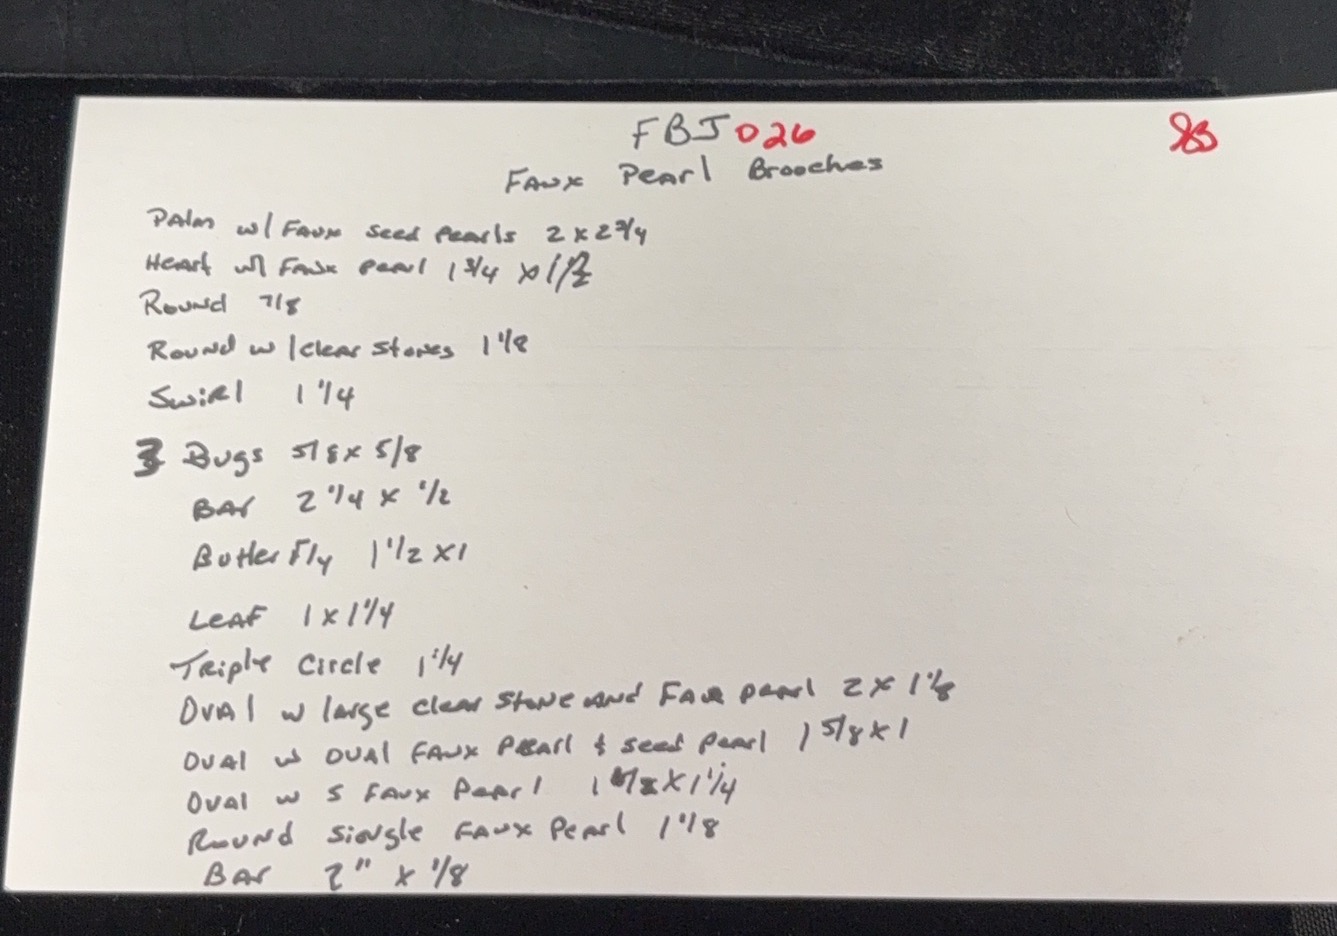 FBJ026
Faux Pearl Brooches
Palm w/ Faux seed pearls 2 x 2 3/4
Heart w/ Faux pearl 1 3/4 x 1 1/2
Round 7/8
Round w/clear stones 1 1/8
Swirl 1 1/4
3 Bugs 5/8 x 5/8
Bar 2 1/4 x 1/2
Butterfly 1 1/2 x 1
Leaf 1 x 1 1/4
Triple Circle 1 1/4
Oval w large clear stone and Faux pearl 2 x 1
Oval w oval faux pearl & seed pearl 1 5/8 x 1
Oval w 5 faux pearl 1 x 1 1/4
Round single faux pearl 1 1/8
Bar 2" x 1/8